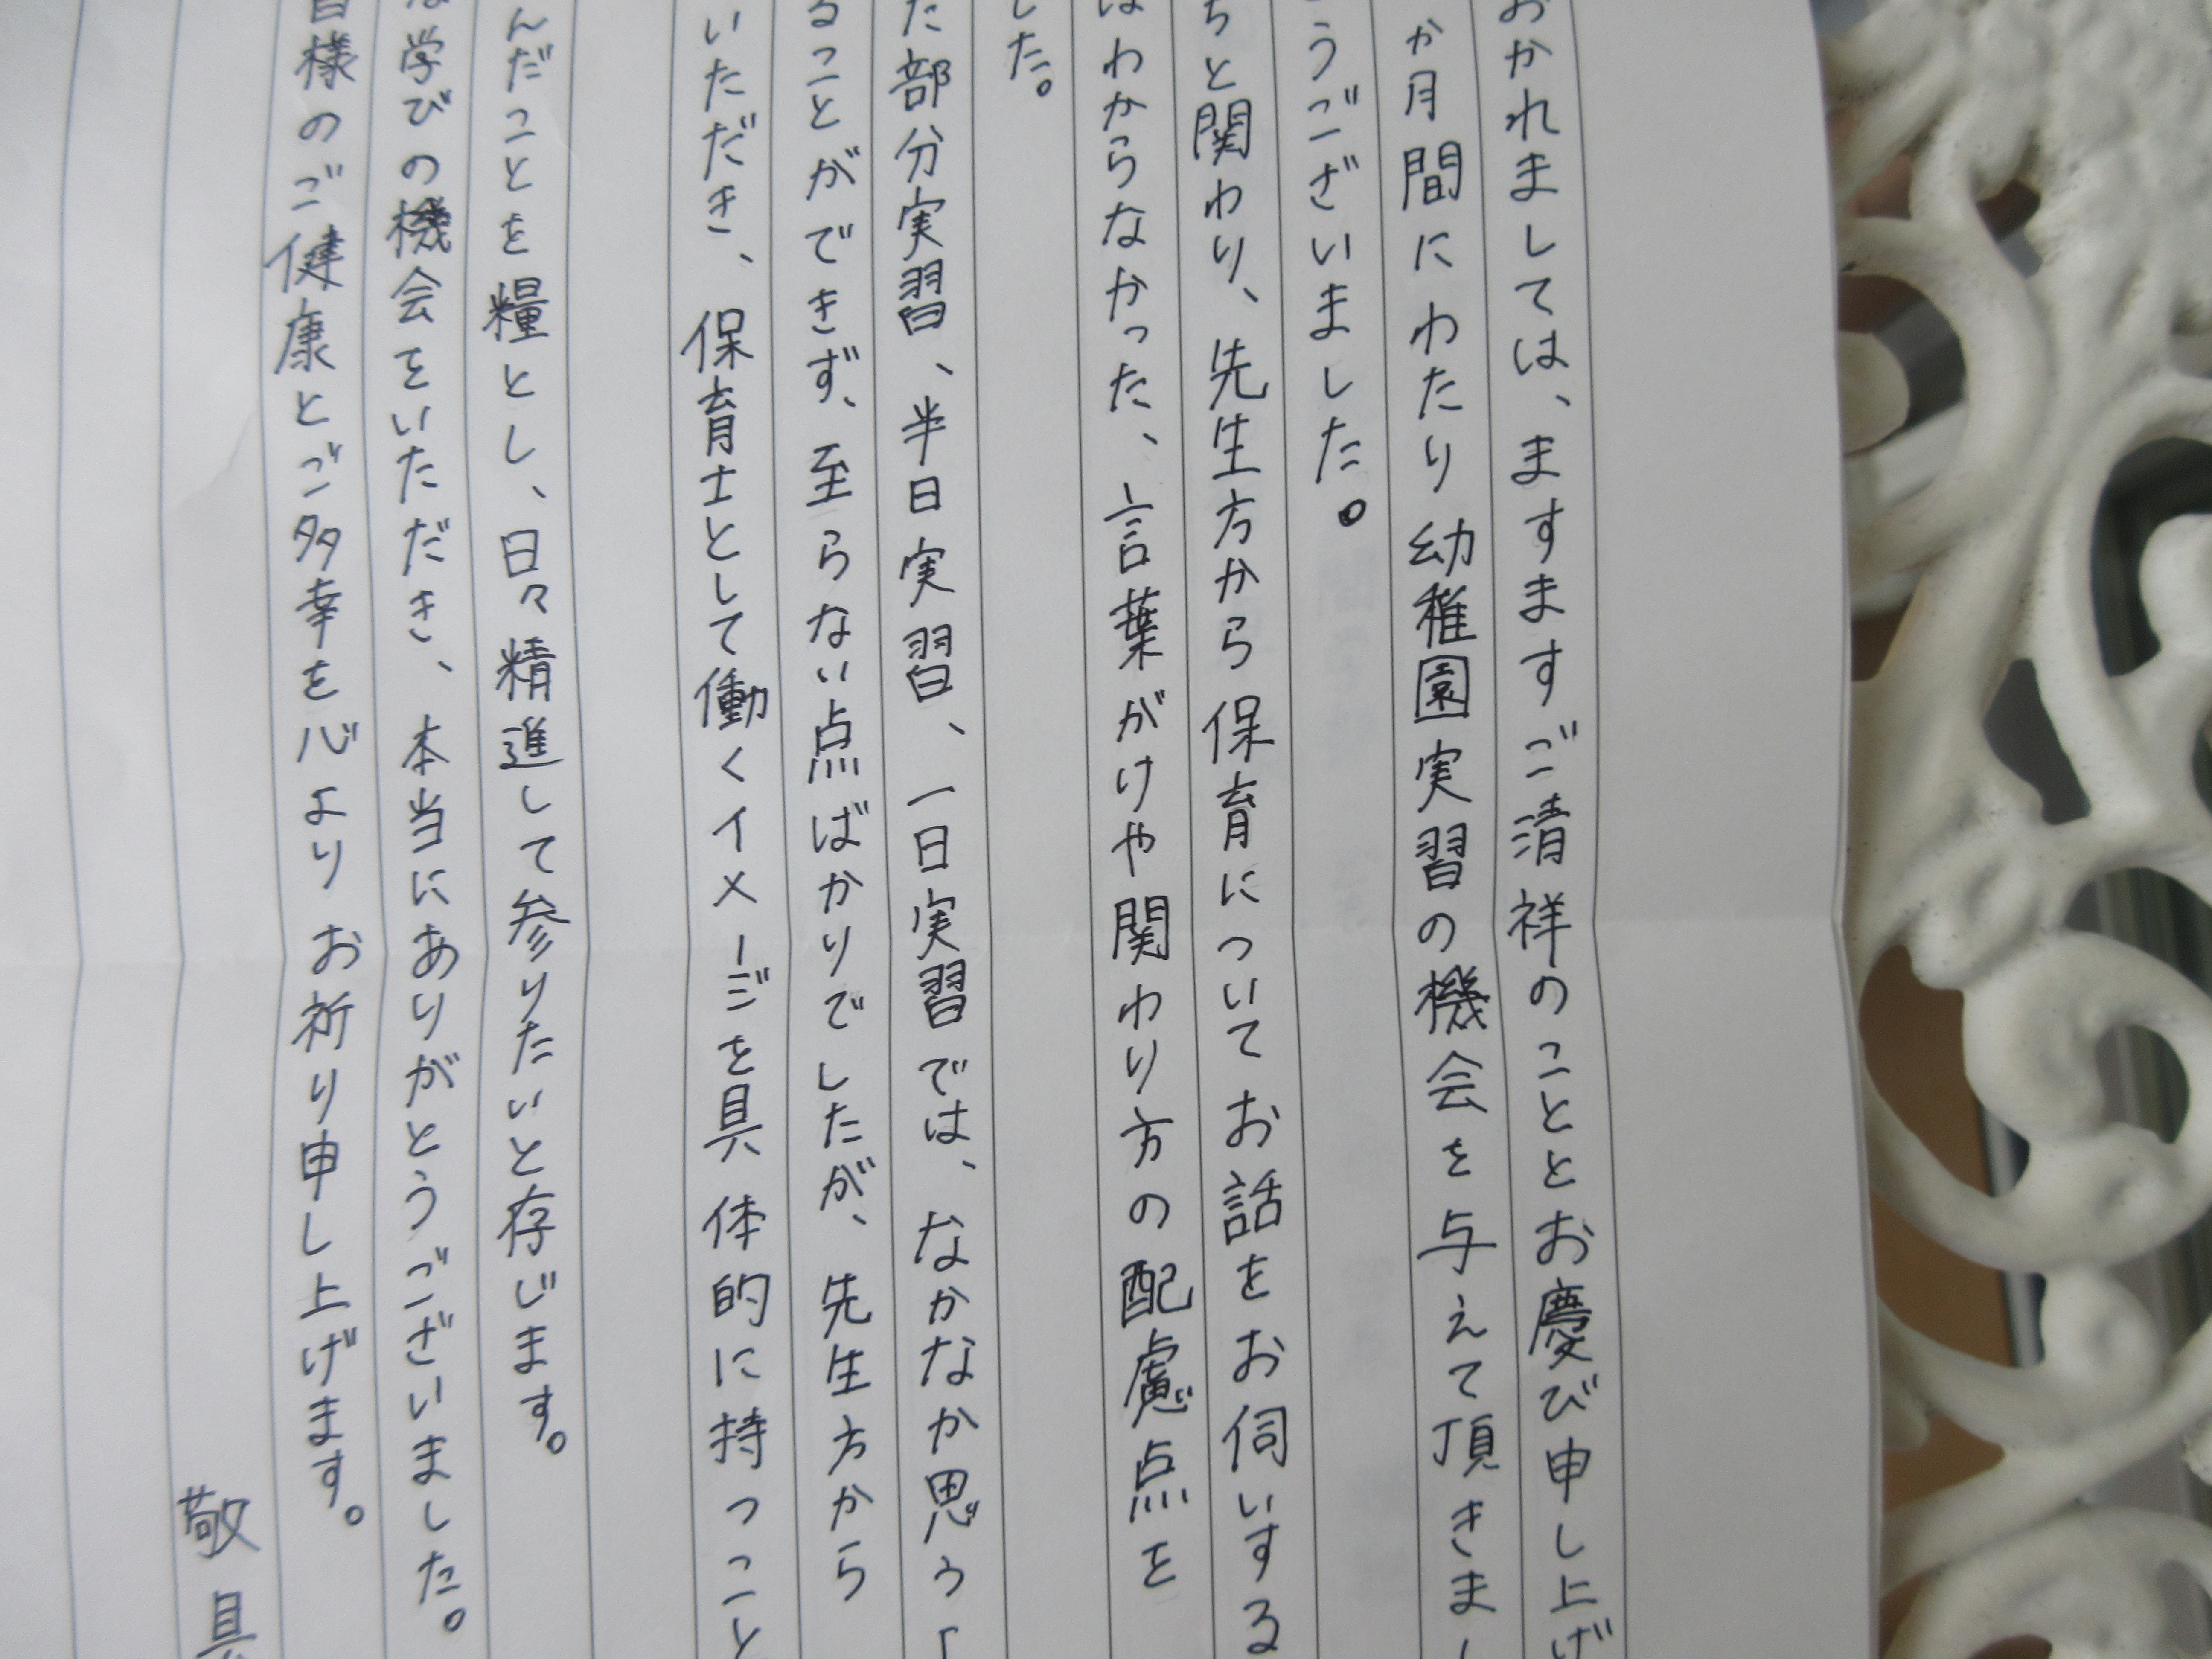 おかれましては、ますますご清祥のこととお慶び申し上げ
か月間にわたり幼稚園実習の機会を与えて頂きま
うございました。
ちと関わり、先生方から保育についてお話をお伺いする
はわからなかった、言葉がけや関わり方の配慮点を
した。
た部分実習、半日実習、一日実習では、なかなか思う
ることができず、至らない点ばかりでしたが、先生方から
いただき、保育士として働くイメージを具体的に持つこと
んだことを糧とし、日々精進して参りたいと存じます。
な学びの機会をいただき、本当にありがとうございました。
様のご健康とご多幸を心よりお祈り申し上げます。
敬具